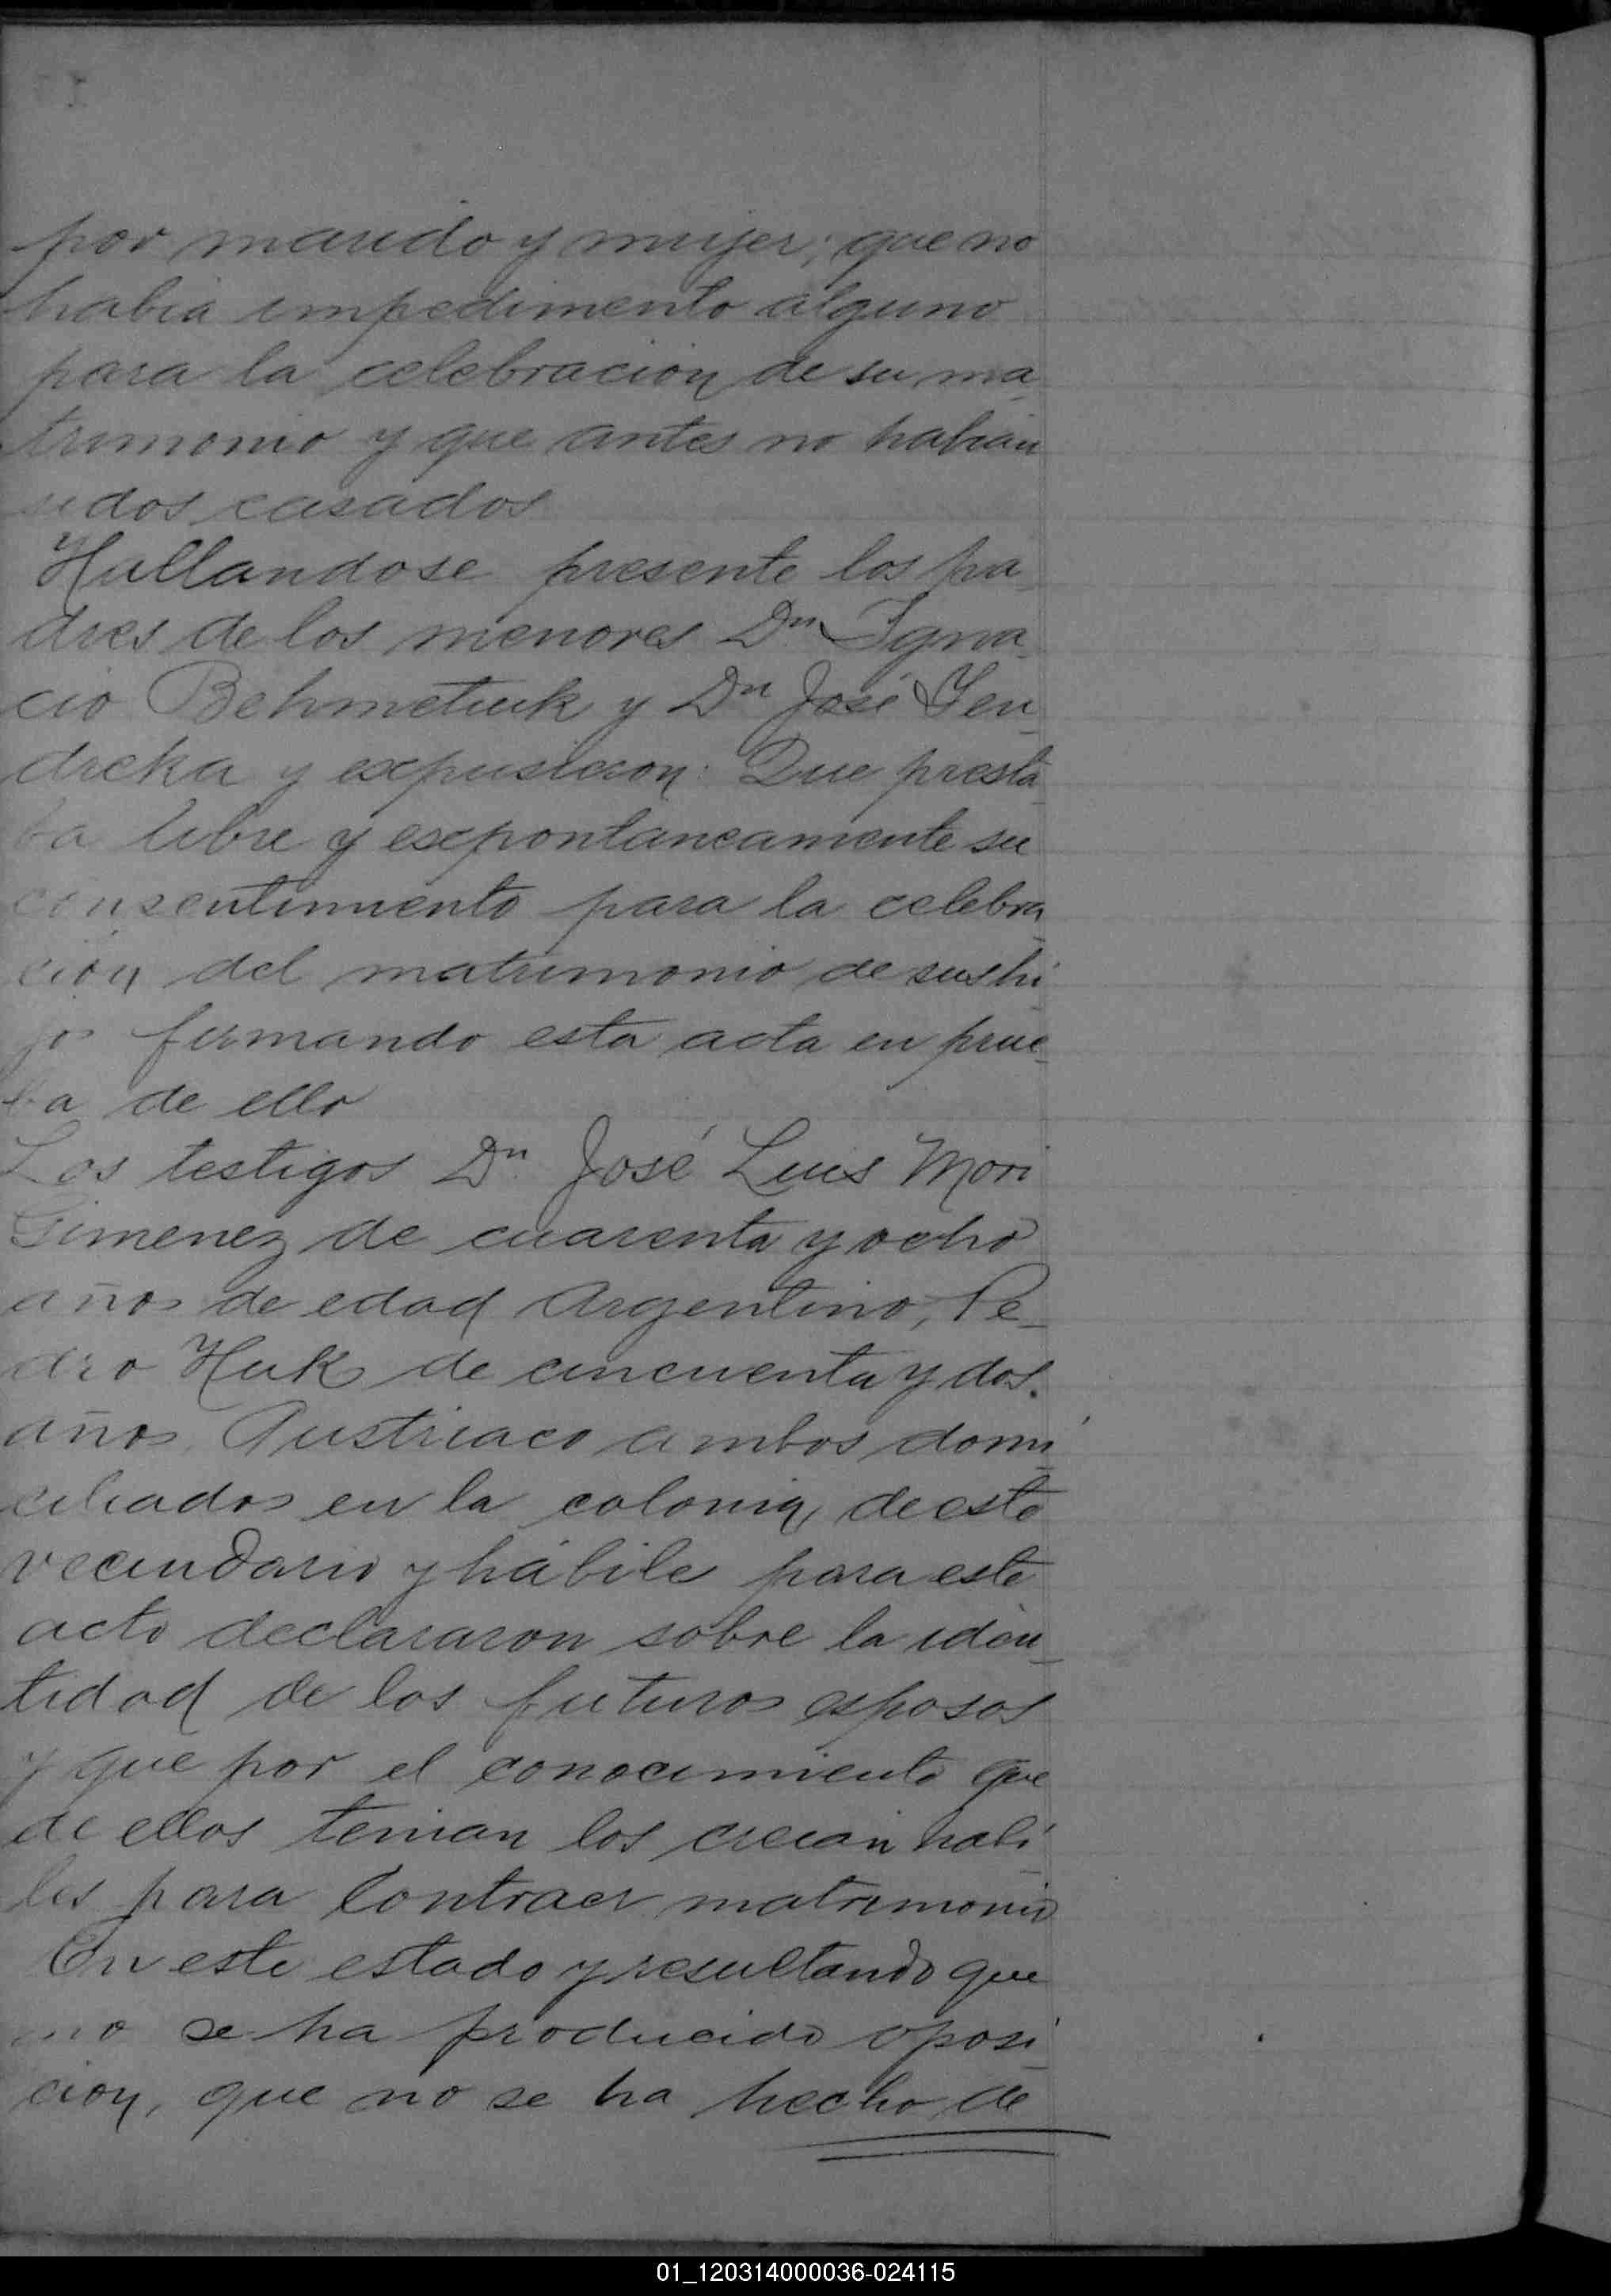 por marido y mujer; que no
habia impedimento alguno
para la celebracion de su ma-
trimonio y que antes no habian
sidos casados
Hallandose presente los pa-
dres de los menores Dn Igna-
cio Behmetiuk y Dn José Gen-
dreka y expusieron: Que presta-
ba libre y expontaneamente su
consentimiento para la celebra-
cion del matrimonio de sus hi-
jos firmando esta acta en prue-
ba de ello
Los testigos Dn José Luis Mori
Gimenez de cuarenta y ocho
años de edad Argentino, Pe-
dro Huk de cincuenta y dos.
años, Austriaco ambos domi-
ciliados en la colonia, de este
vecindario y hábile para este
acto declararon sobre la iden-
tidad de los futuros esposos
y que por el conocimiento que
de ellos tenian los creian habi-
les para Contraer matrimonio
En este estado y resultando que
no se ha producido oposi-
cion, que no se ha hecho de
01_120314000036-024115